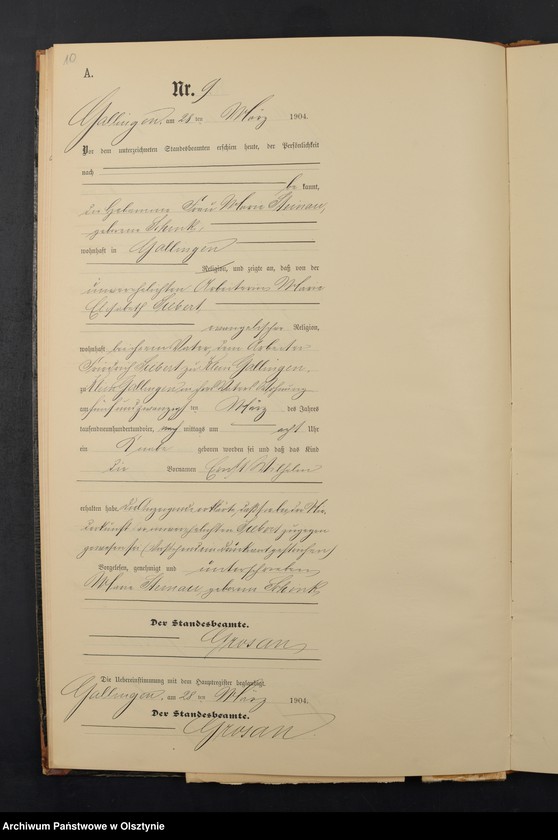 10
A.
Nr. 9
Gallingen, am 28 ten März 1904.
Vor dem unterzeichneten Standesbeamten erschien heute, der Persönlichkeit
nach
be kannt,
die Hebamme Frau Marie
geborene Schenk,
wohnhaft in Gallingen
Religion, und zeigte an, daß von der
unverehelichten Arbeiterin Marie
Elisabeth Siebert,
evangelischer Religion,
wohnhaft bei ihrem Vater, dem Arbeiter
Friedrich Siebert zu Klein Gallingen
zu Klein Gallingen, in ihres Vaters Wohnung
am fünf und zwanzig ten März des Jahres
tausendneunhundertundvier, nach mittags um acht Uhr
ein Knabe geboren worden sei und daß das Kind
die Vornamen Ernst Wilhelm
erhalten habe. Die Anzeigende erklärte, daß sie bei der Nie-
derkunft der unverehelichten Siebert zugegen
gewesen sei
Vorgelesen, genehmigt und unterschrieben
geborene Schenk
Der Standesbeamte.
Grosan
Die Uebereinstimmung mit dem Hauptregister beglaubigt.
Gallingen, am 28 ten März 1904.
Der Standesbeamte.
Grosan
Archiwum Państwowe w Olsztynie